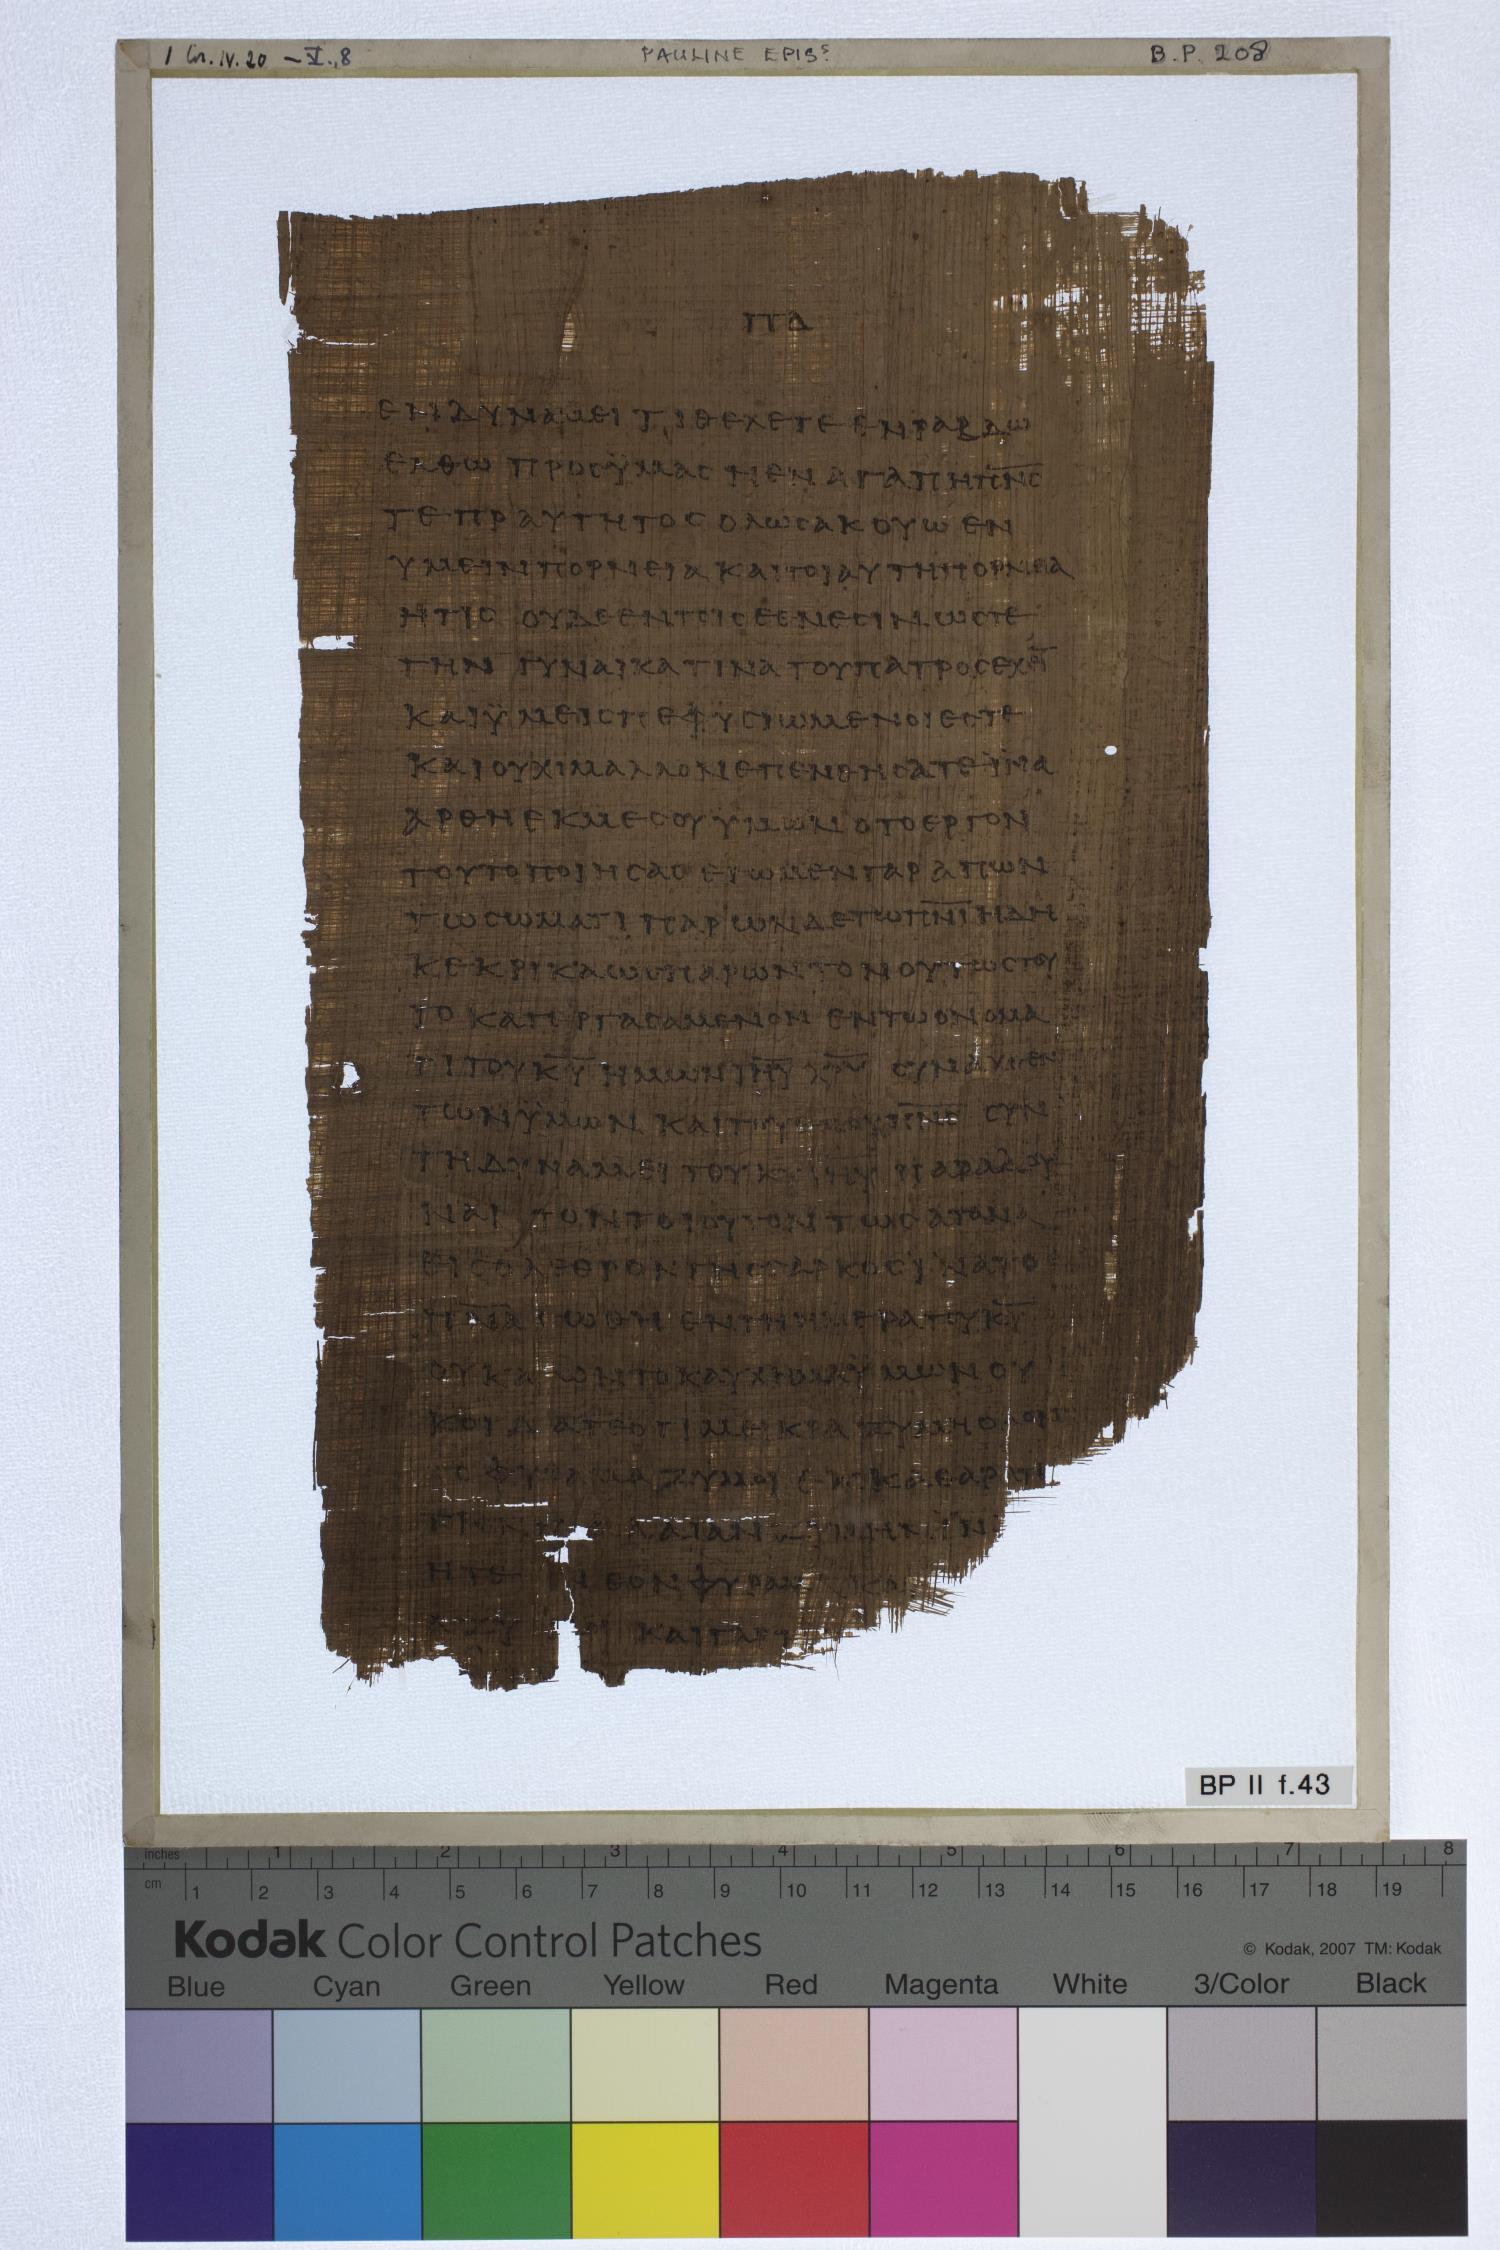 1 Cor. IV. 20 – V., 8 PAULINE EPISS B.P. 208
ΠΔ
ΕΝ ΔΥΝΑΜΕΙ ΤΙ ΘΕΛΕΤΕ ΕΝ ΡΑΒΔΩ
ΕΛΘΩ ΠΡΟΣ ΫΜΑΣ Η ΕΝ ΑΓΑΠΗ Π̅Ν̅Σ̅
ΤΕ ΠΡΑΥΤΗΤΟΣ ΟΛΩΣ ΑΚΟΥΩ ΕΝ
ΥΜΕΙΝ ΠΟΡΝΕΙΑ ΚΑΙ ΤΟΙΑΥΤΗ ΠΟΡΝΕΙΑ
ΗΤΙΣ ΟΥΔΕ ΕΝ ΤΟΙΣ ΕΘΝΕΣΙΝ ΩΣΤΕ
ΤΗΝ ΓΥΝΑΙΚΑ ΤΙΝΑ ΤΟΥ ΠΑΤΡΟΣ ΕΧΕΙ̅
ΚΑΙ ΫΜΕΙΣ ΠΕΦΥΣΙΩΜΕΝΟΙ ΕΣΤΕ
ΚΑΙ ΟΥΧΙ ΜΑΛΛΟΝ ΕΠΕΝΘΗΣΑΤΕ ΪΝΑ
ΑΡΘΗ ΕΚ ΜΕΣΟΥ ΫΜΩΝ Ο ΤΟ ΕΡΓΟΝ
ΤΟΥΤΟ ΠΟΙΗΣΑΣ ΕΓΩ ΜΕΝ ΓΑΡ ΑΠΩΝ
ΤΩ ΣΩΜΑΤΙ ΠΑΡΩΝ ΔΕ ΤΩ Π̅Ν̅Ι̅ ΗΔΗ
ΚΕΚΡΙΚΑ ΩΣ ΠΑΡΩΝ ΤΟΝ ΟΥΤΩΣ ΤΟΥ
ΤΟ ΚΑΤΕΡΓΑΣΑΜΕΝΟΝ ΕΝ ΤΩ ΟΝΟΜΑ
ΤΙ ΤΟΥ Κ̅Υ̅ ΗΜΩΝ Ι̅Η̅Υ̅ Χ̅Ρ̅Υ̅ ΣΥΝΑΧΘΕΝ
ΤΩΝ ΫΜΩΝ ΚΑΙ ΤΟΥ Π̅Ν̅Σ̅ ΣΥΝ
ΤΗ ΔΥΝΑΜΕΙ ΤΟΥ Κ̅Υ̅ Ι̅Η̅Υ̅ ΠΑΡΑΔΟΥ
ΝΑΙ ΤΟΝ ΤΟΙΟΥΤΟΝ ΤΩ ΣΑΤΑΝΑ
ΕΙΣ ΟΛΕΘΡΟΝ ΤΗΣ ΣΑΡΚΟΣ ΪΝΑ ΤΟ
Π̅Ν̅Α̅ ΣΩΘΗ ΕΝ ΤΗ ΗΜΕΡΑ ΤΟΥ Κ̅Υ̅
ΟΥ ΚΑΛΟΝ ΤΟ ΚΑΥΧΗΜΑ ΫΜΩΝ ΟΥ
Κ ΟΙΔΑΤΕ ΟΤΙ ΜΕΙΚΡΑ ΖΥΜΗ ΟΛΟΝ
ΤΟ ΦΥΡΑΜΑ ΖΥΜΟΙ ΕΚΚΑΘΑΡΑΤΕ
ΤΗΝ ΠΑΛΑΙΑΝ ΖΥΜΗΝ ΪΝ
ΗΤΕ ΝΕΟΝ ΦΥΡΑΜΑ ΚΑ
ΑΖΥ ΟΙ ΚΑΙ ΓΑΡ
BP II f.43
inches 1 2 3 4 5 6 7 8
cm 1 2 3 4 5 6 7 8 9 10 11 12 13 14 15 16 17 18 19
Kodak Color Control Patches © Kodak, 2007 TM: Kodak
Blue Cyan Green Yellow Red Magenta White 3/Color Black